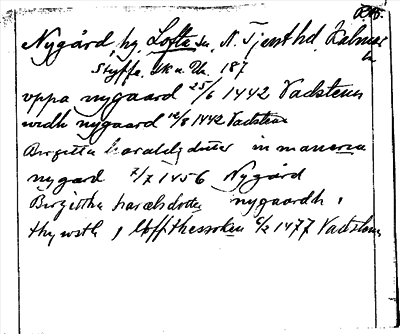 Nygård, hg, Lofta sn, N. Tjust hd, Kalmar
Styffe, Sk u. Un. 187
uppa nygaard 25/6 1442 Vadstena
widh nygaard 12/8 1442 Vadstena
Birgitta haraldz dotter in maneria
nygard 7/7 1456 Nygård
Birgittha haraldsdotter nygaardh i
thywsth i loffthessoken 6/2 1477 Vadstena